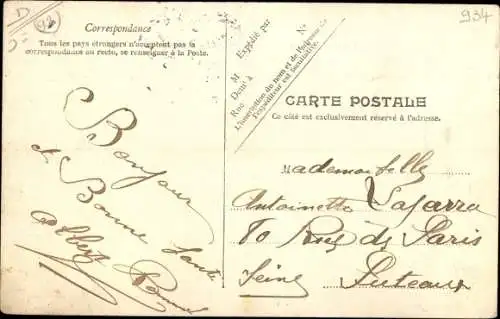 D
92
934
Correspondance
Tous les pays étrangers n'acceptent pas la
correspondance au recto, se renseigner à la Poste.
Expédié par
M
Demt à
Rue
N°
L'inscription du nom et de l'adresse de
l'expéditeur est facultative.
CARTE POSTALE
Ce côté est exclusivement réservé à l'adresse.
Bonjour
et Bonne Santé
Mademoiselle
Antoinette Lafarra
70 Rue de Paris
Puteaux
Seine